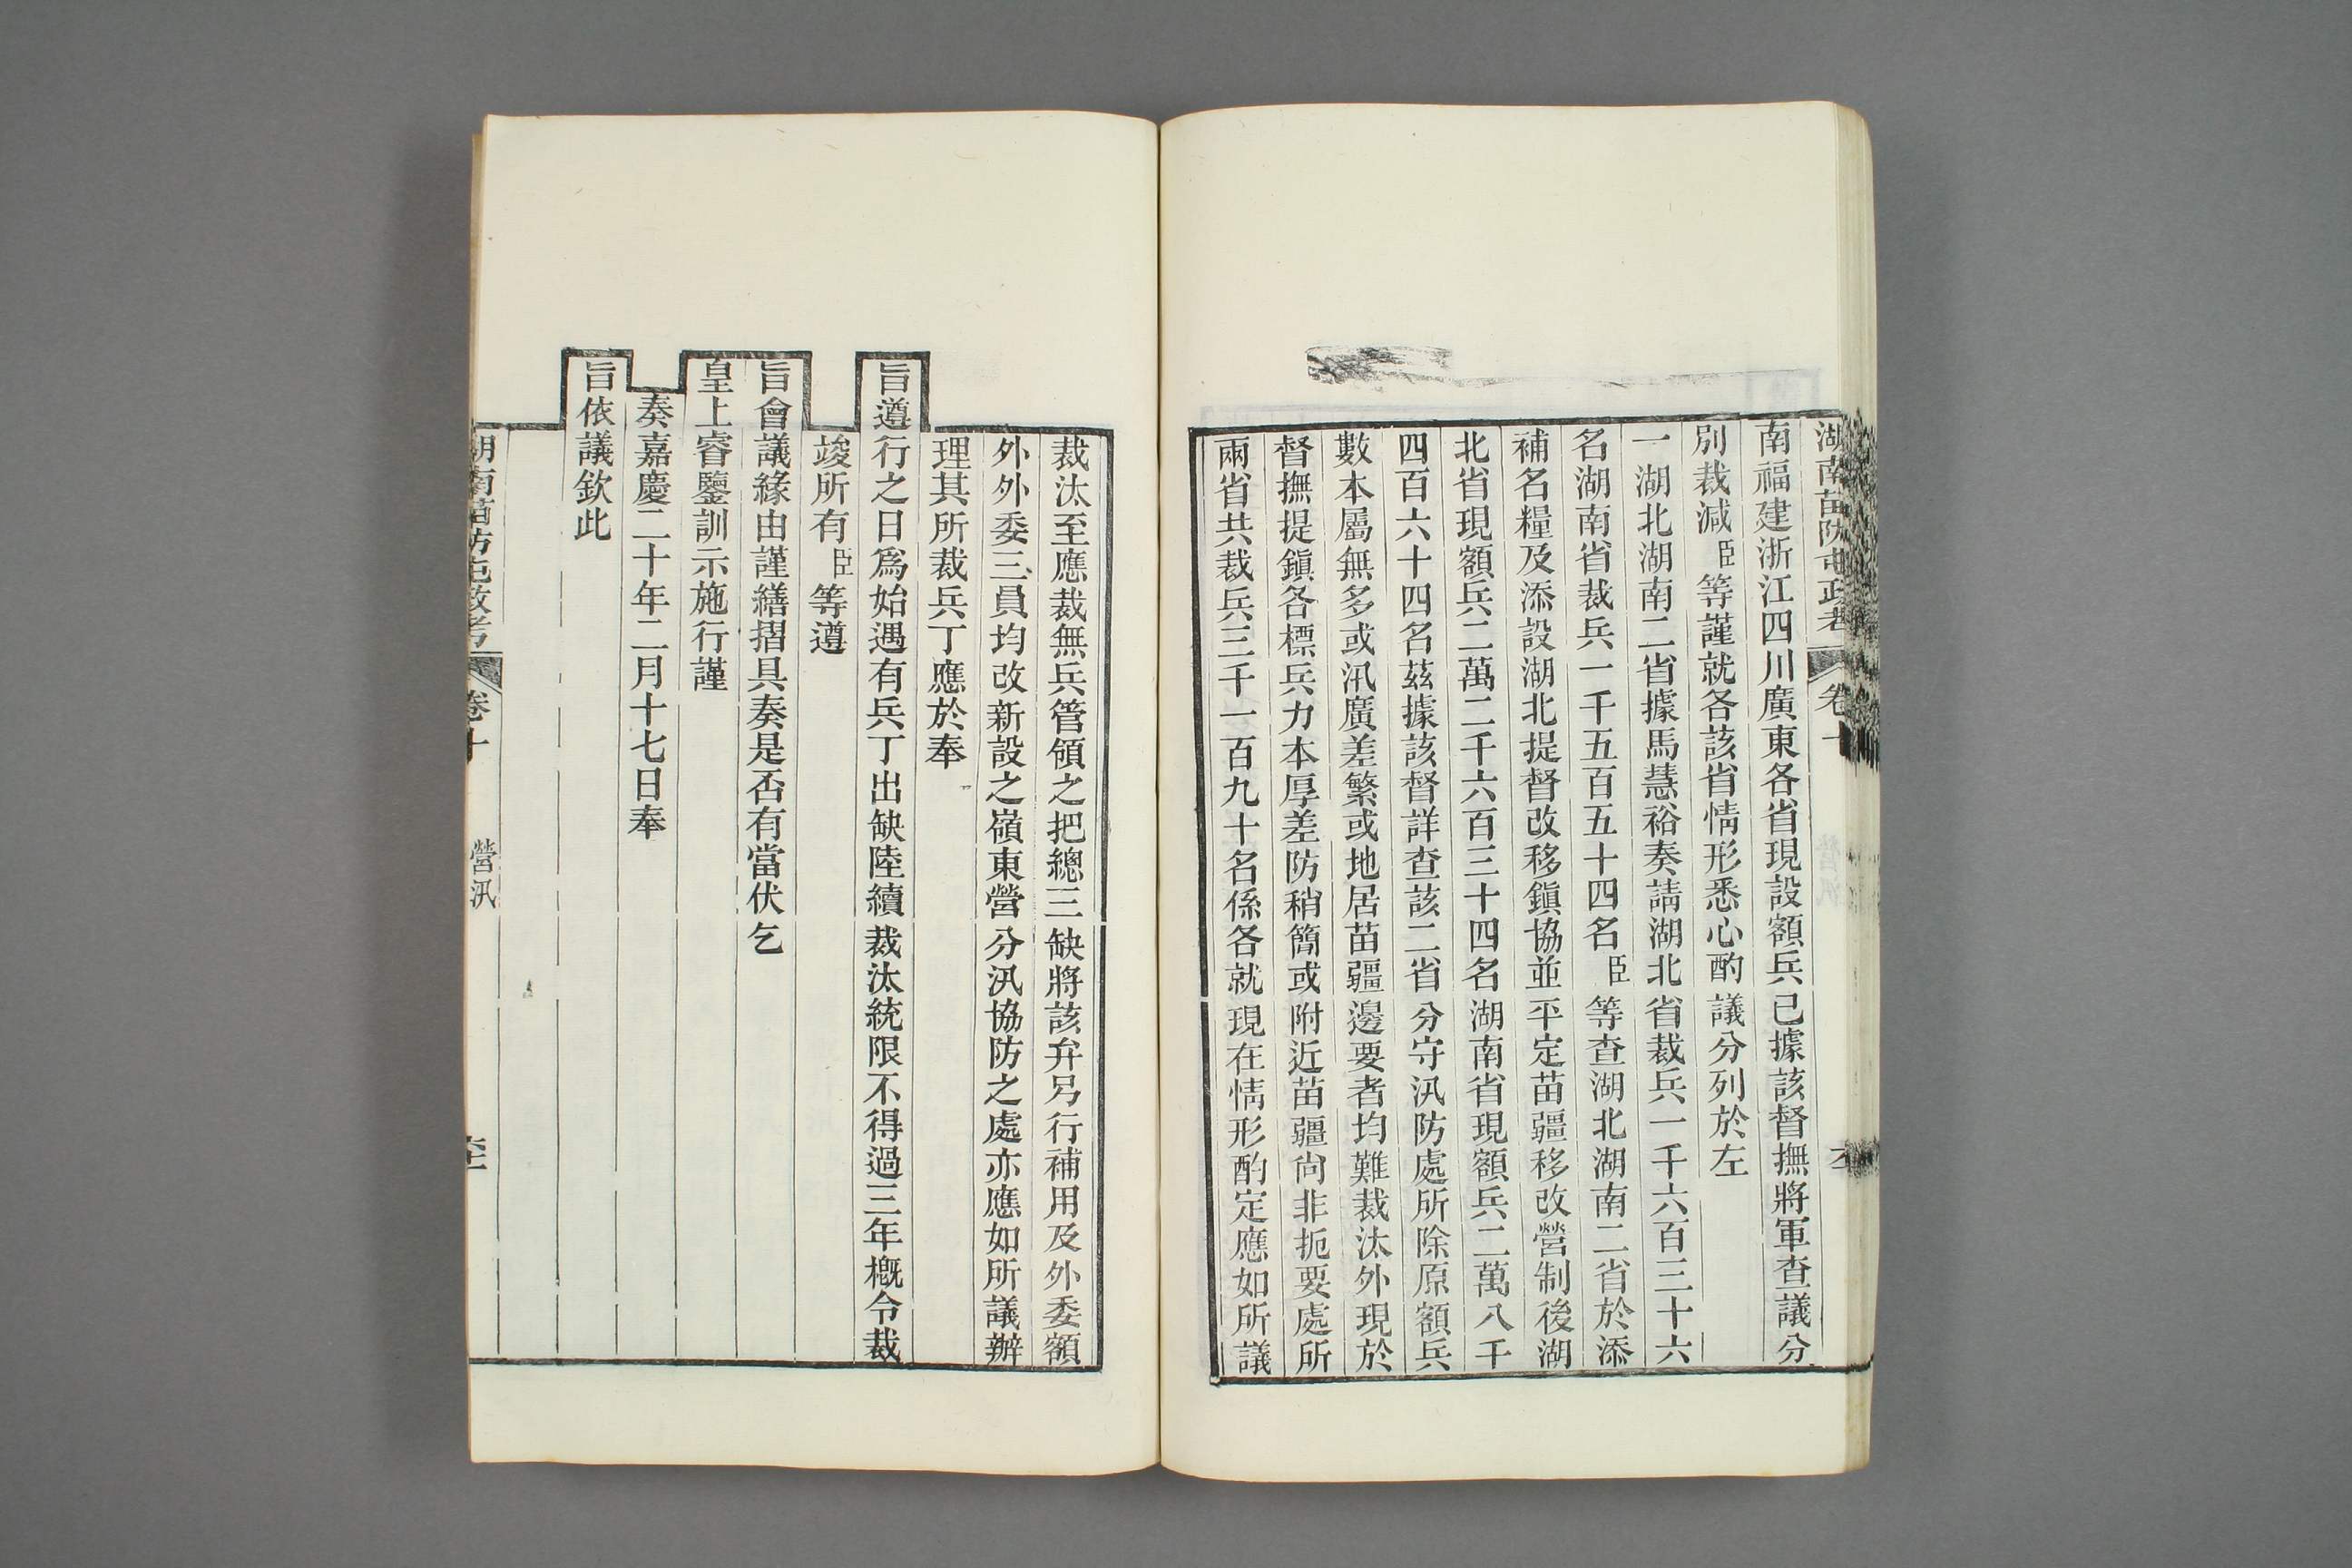 湖南苗防屯政考 卷十
南福建浙江四川廣東各省現設額兵已據該督撫將軍查議分
別裁減臣等謹就各該省情形悉心酌議分列於左
一湖北湖南二省據馬慧裕奏請湖北省裁兵一千六百三十六
名湖南省裁兵一千五百五十四名臣等查湖北湖南二省於添
補名糧及添設湖北提督改移鎭協並平定苗疆移改營制後湖
北省現額兵二萬二千六百三十四名湖南省現額兵二萬八千
四百六十四名茲據該督詳查該二省分守汛防處所除原額兵
數本屬無多或汛廣差繁或地居苗疆邊要者均難裁汰外現於
督撫提鎭各標兵力本厚差防稍簡或附近苗疆尙非扼要處所
兩省共裁兵三千一百九十名係各就現在情形酌定應如所議
裁汰至應裁無兵管領之把總三缺將該弁另行補用及外委額
外外委三員均改新設之嶺東營分汛協防之處亦應如所議辦
理其所裁兵丁應於奉
旨遵行之日爲始遇有兵丁出缺陸續裁汰統限不得過三年槪令裁
竣所有臣等遵
旨會議緣由謹繕摺具奏是否有當伏乞
皇上睿鑒訓示施行謹
奏嘉慶二十年二月十七日奉
旨依議欽此
湖南苗防屯政考 卷十 營汛